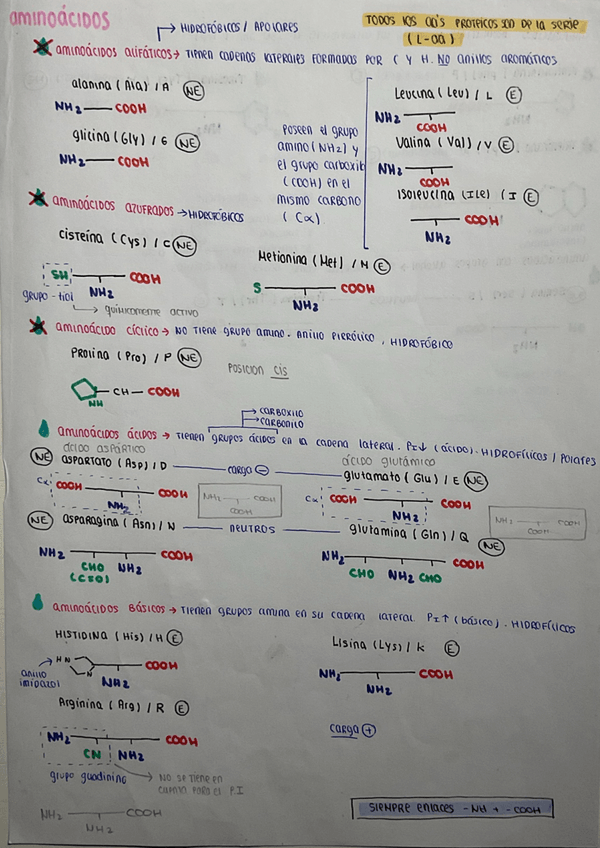 aminoácidos
HIDROFÓBICOS / APOLARES
TODOS LOS aa's PROTEICOS SON DE LA SERIE
(L-aa)
aminoácidos alifáticos → TIENEN CADENAS LATERALES FORMADAS POR C Y H. NO ANILLOS AROMÁTICOS
alanina (Ala) / A (NE)
NH2 — COOH
glicina (Gly) / G (NE)
NH2 — COOH
POSEEN EL GRUPO
AMINO (NH2) Y
EL GRUPO CARBOXIL
(COOH) EN EL
MISMO CARBONO
(Cα)
Leucina (Leu) / L (E)
NH2
COOH
Valina (Val) / V (E)
NH2
COOH
Isoleucina (ILe) / I (E)
COOH
NH2
aminoácidos azufrados → HIDROFÓBICOS
cisteína (Cys) / C (NE)
SH COOH
NH2
grupo-tiol
químicamente activo
Metionina (Met) / M (E)
S COOH
NH2
aminoácido cíclico → NO TIENE GRUPO AMINO. ANILLO PIRRÓLICO. HIDROFÓBICO
Prolina (Pro) / P (NE)
POSICION cis
NH — CH — COOH
CARBOXILO
CARBONILO
aminoácidos ácidos → TIENEN GRUPOS ÁCIDOS EN LA CADENA LATERAL. PI↓ (ÁCIDO). HIDROFÍLICOS / POLARES
ácido aspártico
(NE) aspartato (Asp) / D — carga ⊖ — glutamato (Glu) / E (NE)
ácido glutámico
Cα COOH COOH
NH2
NH2 COOH
COOH
Cα COOH COOH
NH2
NH2 COOH
COOH
(NE) asparagina (Asn) / N — NEUTROS — glutamina (Gln) / Q (NE)
NH2 COOH
CHO NH2
NH2 COOH
CHO NH2 CHO
aminoácidos básicos → TIENEN GRUPOS AMINA EN SU CADENA LATERAL PI↑ (BÁSICO). HIDROFÍLICOS
HISTIDINA (His) / H (E)
HN N COOH
NH2
anillo
imidazol
Lisina (Lys) / K (E)
NH2 COOH
NH2
Arginina (Arg) / R (E)
NH2 COOH
CN NH2
grupo guadinino
NO SE TIENE EN
CUENTA PARA EL P.I
carga ⊕
NH2 COOH
NH2
SIEMPRE ENLACES -NH + -COOH